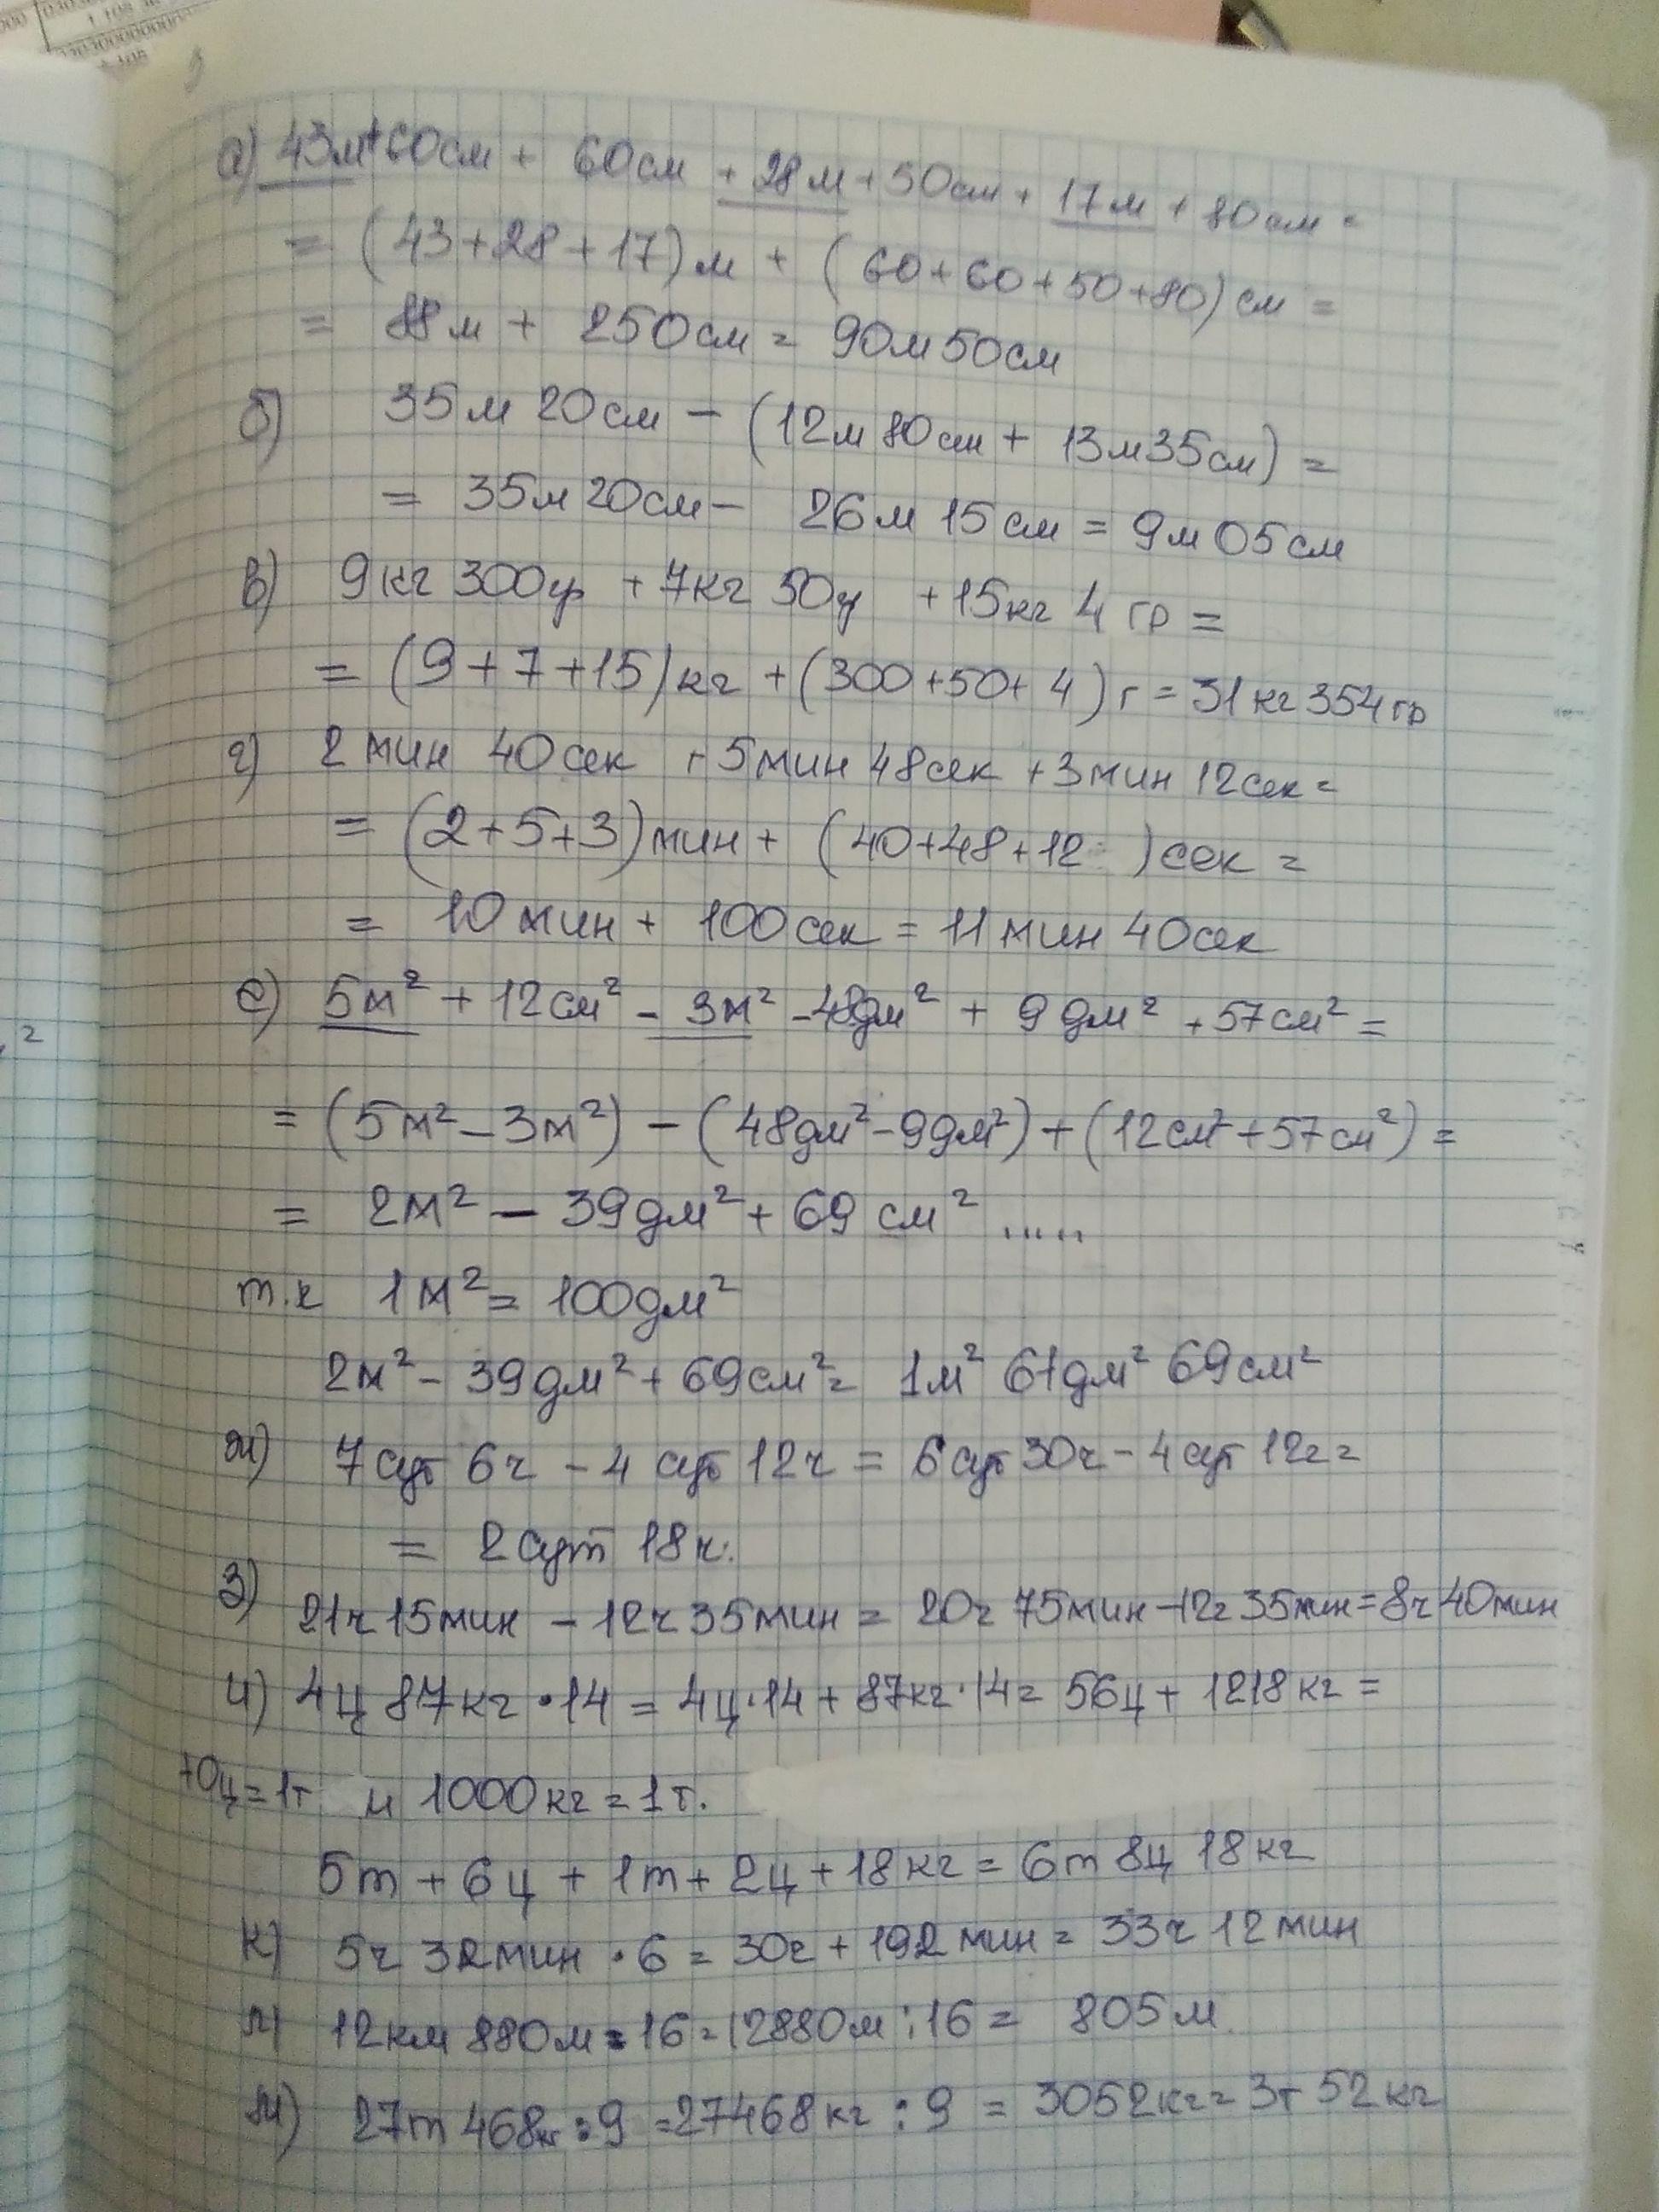 а) 43м+60см + 60см + 28м + 50см + 17м + 80см =
= (43+28+17)м + (60+60+50+80)см =
= 88м + 250см = 90м 50см
б) 35м 20см - (12м 80см + 13м 35см) =
= 35м 20см - 26м 15см = 9м 05см
в) 9кг 300гр + 7кг 50г + 15кг 4 гр =
= (9+7+15)кг + (300+50+4)г = 31кг 354гр
г) 2 мин 40сек + 5мин 48сек + 3мин 12сек =
= (2+5+3)мин + (40+48+12 )сек =
= 10мин + 100сек = 11мин 40сек
е) 5м² + 12см² - 3м² - 48дм² + 9дм² + 57см² =
= (5м² - 3м²) - (48дм² - 9дм²) + (12см² + 57см²) =
= 2м² - 39дм² + 69 см² .....
т.к 1м² = 100дм²
2м² - 39дм² + 69см² = 1м² 61дм² 69см²
ж) 7сут 6ч - 4 сут 12ч = 6сут 30ч - 4сут 12ч =
= 2сут 18ч.
з) 21ч 15мин - 12ч 35мин = 20ч 75мин - 12ч 35мин = 8ч 40мин
и) 4ц 87кг · 14 = 4ц · 14 + 87кг · 14 = 56ц + 1218кг =
10ц = 1т и 1000кг = 1т.
5т + 6ц + 1т + 2ц + 18кг = 6т 8ц 18кг
к) 5ч 32мин · 6 = 30ч + 192мин = 33ч 12мин
л) 12км 880м : 16 = 12880м : 16 = 805м
м) 27т 468кг : 9 = 27468кг : 9 = 3052кг = 3т 52кг